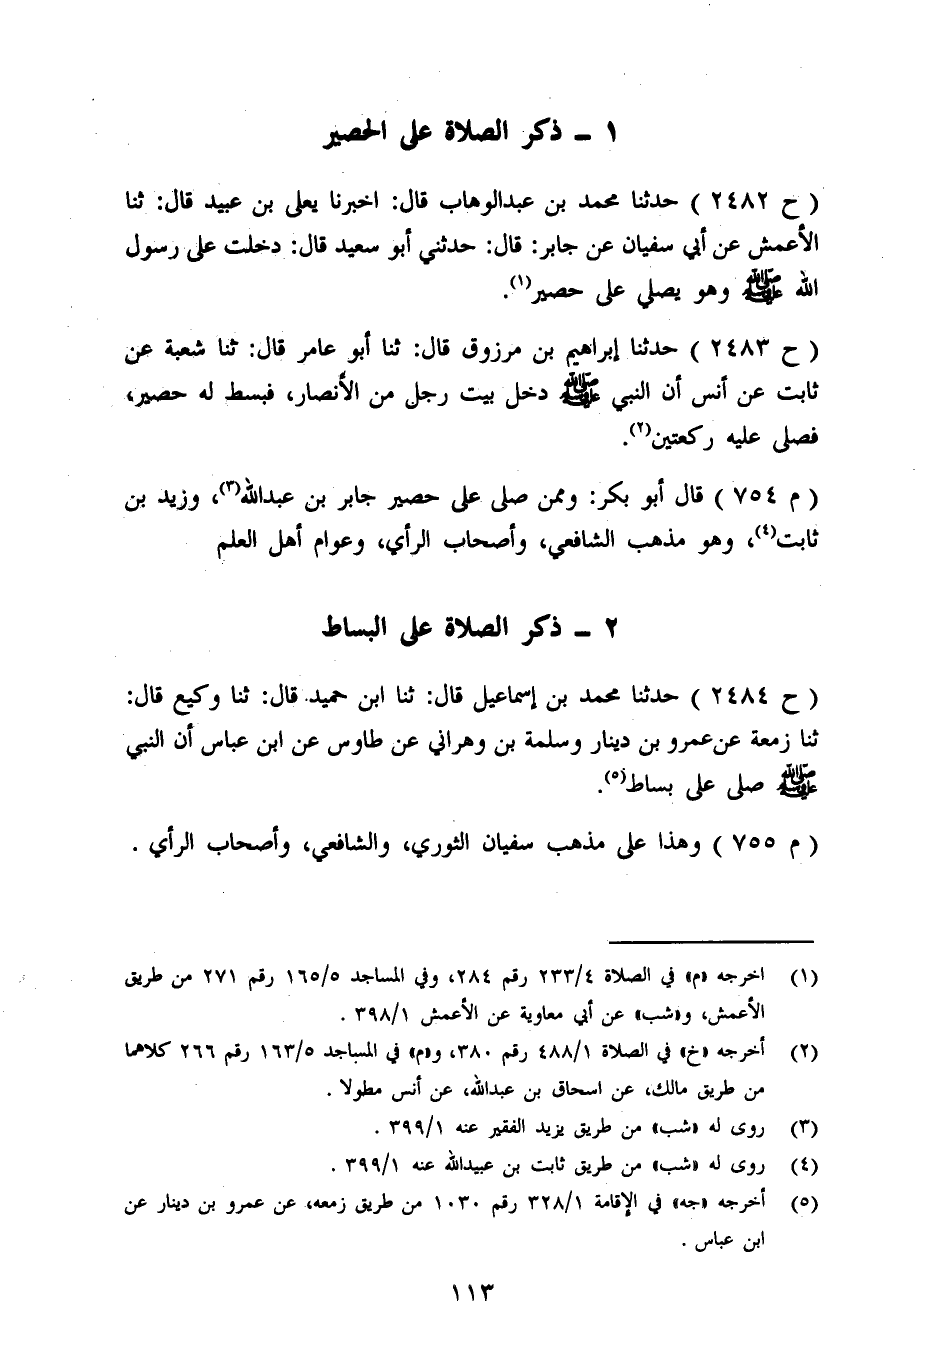 ١ ـ ذكر الصلاة على الحصير
( ح ٢٤٨٢ ) حدثنا محمد بن عبدالوهاب قال: اخبرنا يعلى بن عبيد قال: ثنا
الأعمش عن أبي سفيان عن جابر: قال: حدثني أبو سعيد قال: دخلت على رسول
الله ﷺ وهو يصلي على حصير(١).
( ح ٢٤٨٣ ) حدثنا إبراهيم بن مرزوق قال: ثنا أبو عامر قال: ثنا شعبة عن
ثابت عن أنس أن النبي ﷺ دخل بيت رجل من الأنصار، فبسط له حصير،
فصلى عليه ركعتين(٢).
( م ٧٥٤ ) قال أبو بكر: وممن صلى على حصير جابر بن عبدالله(٣)، وزيد بن
ثابت(٤)، وهو مذهب الشافعي، وأصحاب الرأي، وعوام أهل العلم
٢ ـ ذكر الصلاة على البساط
( ح ٢٤٨٤ ) حدثنا محمد بن إسماعيل قال: ثنا ابن حميد قال: ثنا وكيع قال:
ثنا زمعة عن عمرو بن دينار وسلمة بن وهراني عن طاوس عن ابن عباس أن النبي
ﷺ صلى على بساط(٥).
( م ٧٥٥ ) وهذا على مذهب سفيان الثوري، والشافعي، وأصحاب الرأي .
(١) اخرجه «م» في الصلاة ٢٣٣/٤ رقم ٢٨٤، وفي المساجد ١٦٥/٥ رقم ٢٧١ من طريق
الأعمش، و«شب» عن أبي معاوية عن الأعمش ٣٩٨/١ .
(٢) أخرجه «خ» في الصلاة ٤٨٨/١ رقم ٣٨٠، و«م» في المساجد ١٦٣/٥ رقم ٢٦٦ كلاهما
من طريق مالك، عن اسحاق بن عبدالله، عن أنس مطولا .
(٣) روى له «شب» من طريق يزيد الفقير عنه ٣٩٩/١ .
(٤) روى له «شب» من طريق ثابت بن عبيدالله عنه ٣٩٩/١ .
(٥) أخرجه «جه» في الإقامة ٣٢٨/١ رقم ١٠٣٠ من طريق زمعه، عن عمرو بن دينار عن
ابن عباس .
١١٣